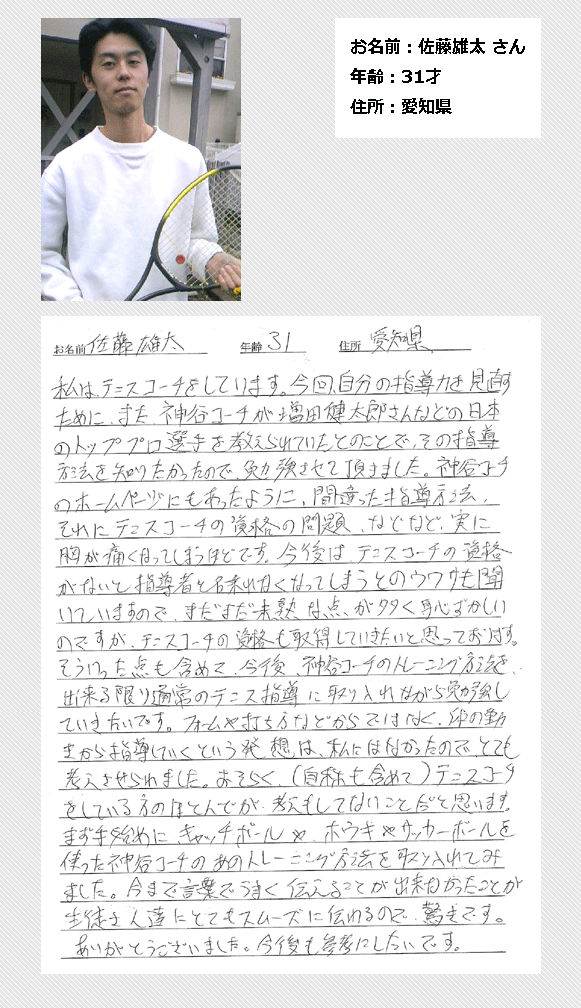 お名前：佐藤雄太 さん
年齢：31才
住所：愛知県
お名前 佐藤雄太 年齢 31 住所 愛知県
私は、テニスコーチをしています。今回、自分の指導力を見直す
ために、また、神谷コーチが増田健太郎さんなどの日本
のトッププロ選手を教えられていたとのことで、その指導
方法を知りたかったので、勉強させて頂きました。神谷コーチ
のホームページにもあったように、間違った指導方法、
それにテニスコーチの資格の問題、などなど、実に
胸が痛くなってしまうほどです。今後は、テニスコーチの資格
がないと指導者と名乗れなくなってしまうとのウワサも聞
いていますので、まだまだ未熟な点が多く恥ずかしい
のですが、テニスコーチの資格も取得していきたいと思っております。
そういった点も含めて、今後、神谷コーチのトレーニング方法を、
出来る限り通常のテニス指導に取り入れながら勉強し
ていきたいです。フォームや打ち方などからではなく、球の動
きから指導していくという発想は、私にはなかったので、とても
考えさせられました。おそらく、（自称も含めて）テニスコーチ
をしている方のほとんどが、考えもしてないことだと思います。
まず手始めに、キャッチボールや、ホウキやサッカーボールを
使った神谷コーチのあのトレーニング方法を取り入れてみ
ました。今まで言葉でうまく伝えることが出来なかったことが
生徒さん達にとてもスムーズに伝わるので、驚きです。
ありがとうございました。今後も参考にしたいです。